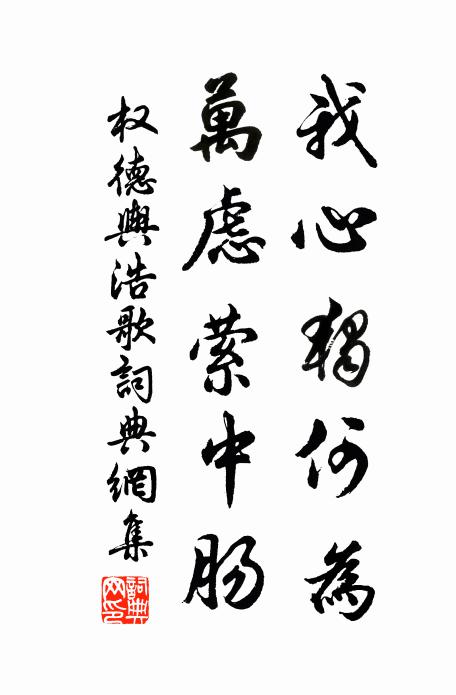 我心獨何為
萬慮縈中腸
权德輿浩歌詞典網集
詞典網印